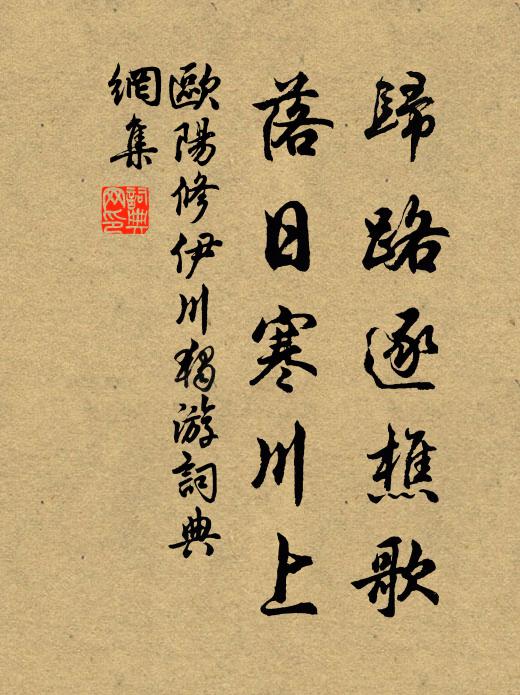 歸路逐樵歌
落日寒川上
歐陽修伊川獨游詞典
網集
詞典
网印